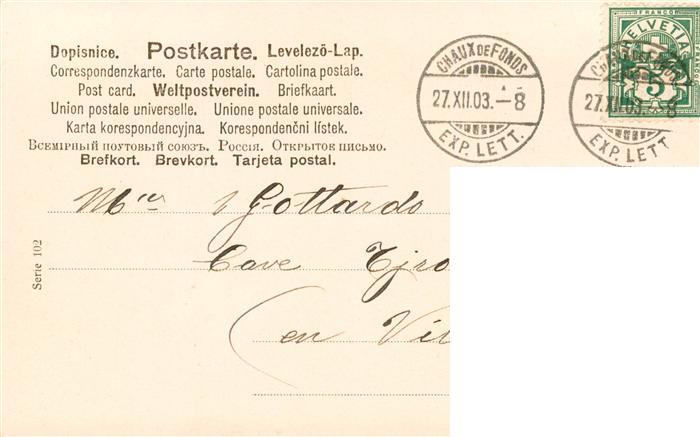 Dopisnice. Postkarte. Levelező-Lap.
Correspondenzkarte. Carte postale. Cartolina postale.
Post card. Weltpostverein. Briefkaart.
Union postale universelle. Unione postale universale.
Karta korespondencyjna. Korespondenční lístek.
Всемірный почтовый союзъ. Россія. Открытое письмо.
Brefkort. Brevkort. Tarjeta postal.
CHAUX DE FONDS
27.XII.03.–8
EXP. LETT.
FRANCO
HELVETIA
5
27.XII.03.–8
EXP. LETT.
Gottardo
Cave
en
Serie 102